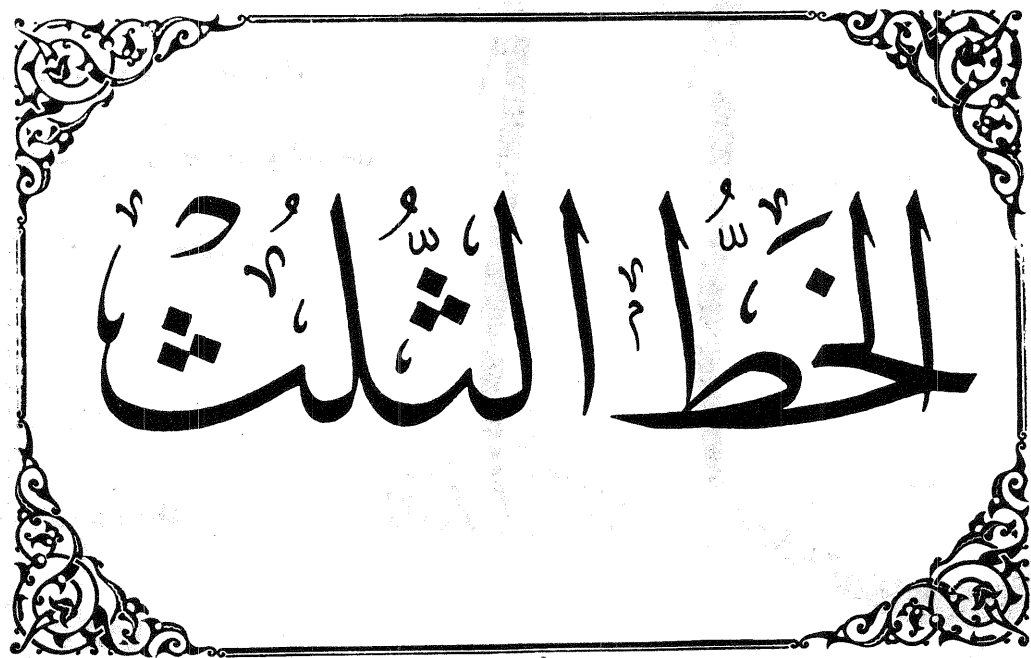 الخَطُّ الثُّلُثْ